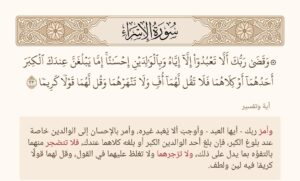 سُورَةُ الإِسْرَاء
۞ وَقَضَىٰ رَبُّكَ أَلَّا تَعْبُدُوٓا۟ إِلَّآ إِيَّاهُ وَبِٱلْوَٰلِدَيْنِ إِحْسَٰنًا ۚ إِمَّا يَبْلُغَنَّ عِندَكَ ٱلْكِبَرَ
أَحَدُهُمَآ أَوْ كِلَاهُمَا فَلَا تَقُل لَّهُمَآ أُفٍّ وَلَا تَنْهَرْهُمَا وَقُل لَّهُمَا قَوْلًا كَرِيمًا ٢٣
آية وتفسير
وأمر ربك - أيها العبد - وأوجب ألا يُعبد غيره، وأمر بالإحسان إلى الوالدين خاصة
عند بلوغ الكبر، فإن بلغ أحد الوالدين الكبر أو بلغه كلاهما عندك، فلا تتضجر منهما
بالتفوّه بما يدل على ذلك، ولا تزجرهما ولا تغلظ عليهما في القول، وقل لهما قولًا
كريمًا فيه لين ولطف.